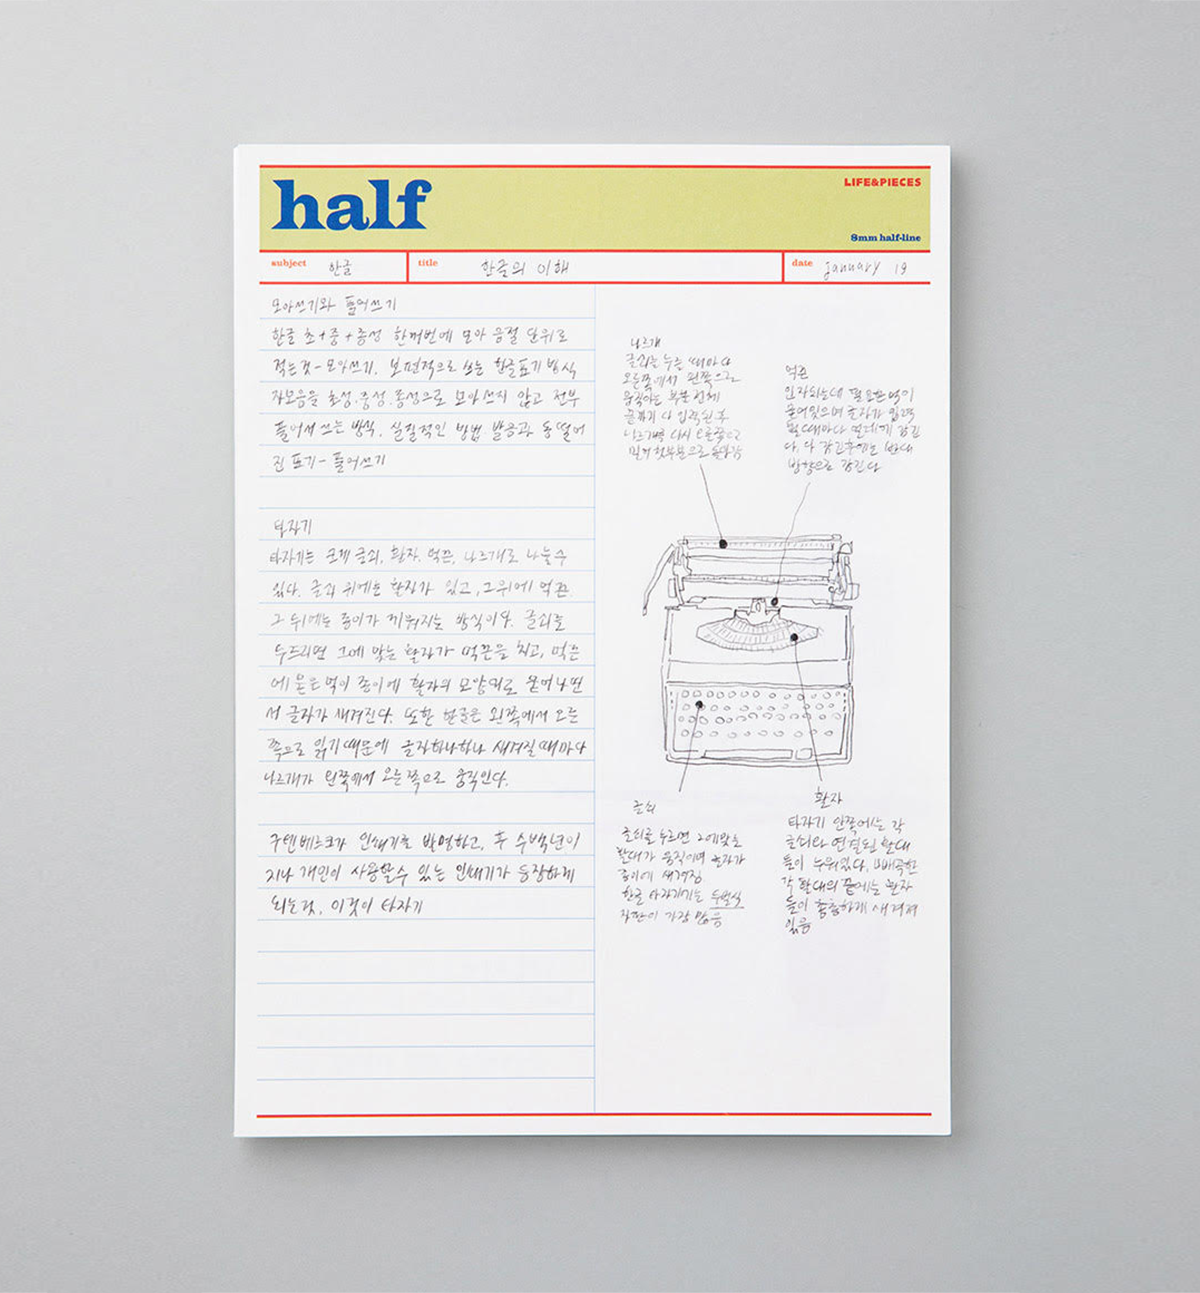 half
LIFE&PIECES
8mm half-line
subject 한글
title 한글의 이해
date january 19
모아쓰기와 풀어쓰기
한글 초+중+종성 한꺼번에 모아 음절 단위로
적는것-모아쓰기. 보편적으로 쓰는 한글표기방식
자모음을 초성.중성.종성으로 모아쓰지 않고 전부
풀어서 쓰는 방식. 실질적인 방법 발음과 동떨어
진 표기-풀어쓰기
타자기
타자기는 크게 글쇠, 활자, 먹끈, 나르개로 나눌수
있다. 글쇠 위에는 활자가 있고, 그위에 먹끈
그 뒤에는 종이가 끼워지는 방식이다. 글쇠를
두드리면 그에 맞는 활자가 먹끈을 치고, 먹끈
에 묻은 먹이 종이에 활자의 모양대로 묻어나면
서 글자가 새겨진다. 또한 한글은 왼쪽에서 오른
쪽으로 읽기때문에 글자하나하나 새겨질때마다
나르개가 왼쪽에서 오른쪽으로 움직인다.
구텐베르크가 인쇄기를 발명하고, 후 수백년이
지나 개인이 사용할수 있는 인쇄기가 등장하게
되는것, 이것이 타자기
나르개
글쇠를 누를 때마다
오른쪽에서 왼쪽으로
움직이는 부분 전체
끝까지 다 입력된 후
나르개를 다시 오른쪽으로
밀면 첫부분으로 돌아감
먹끈
인자되는데 필요한 먹이
묻어있으며 글자가 입력
될때마다 한데에 감긴
다. 다 감긴후에는 반대
방향으로 감긴다
글쇠
글쇠를 누르면 그에맞는
활대가 움직이며 글자가
종이에 새겨짐
한글 타자기는 두벌식
자판이 가장 많음
활자
타자기 안쪽에는 각
글쇠와 연결된 활대
들이 누워있다. 빼곡한
각 활대의 끝에는 활자
들이 촘촘하게 새겨져
있음